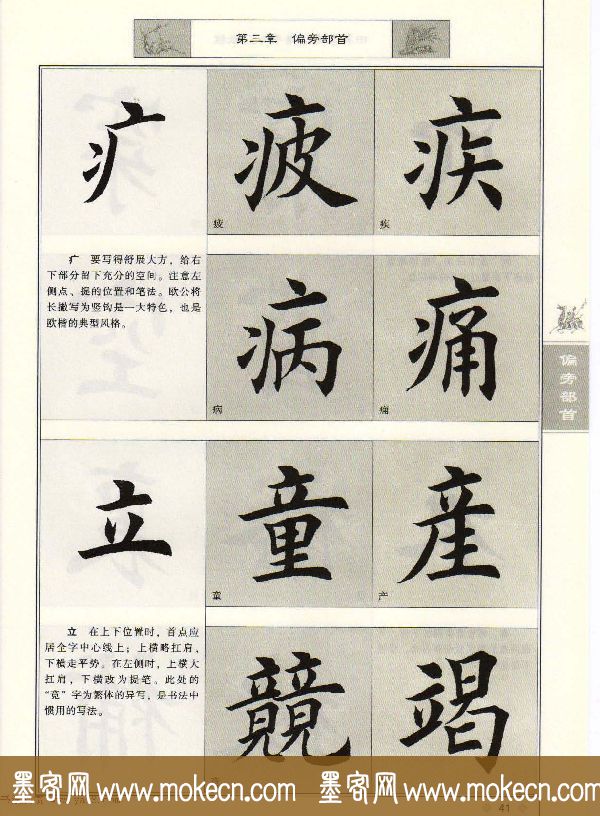 第三章 偏旁部首
疒 疲 疾
疲 疾
疒 要写得舒展大方，给右
下部分留下充分的空间。注意左
侧点、提的位置和笔法。欧公将
长撇写为竖钩是一大特色，也是
欧楷的典型风格。
病 痛
病 痛
偏旁部首
立 童 産
童 产
立 在上下位置时，首点应
居全字中心线上；上横略扛肩，
下横走平势。在左侧时，上横大
扛肩，下横改为提笔。此处的
“竞”字为繁体的异写，是书法中
惯用的写法。
竸 竭
墨客网 www.mokecn.com 墨客网 www.mokecn.com
41